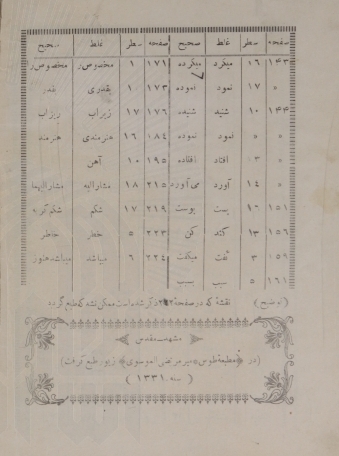 صفحه سطر غلط صحیح صفحه سطر غلط صحیح
۱۴۳ ۱۶ میکرد میکرده ۱۷۱ ۱ مخصوص ر مخصوص ر
» ۱۷ نمود نموده ۱۷۳ ۱۰ بقدری بقدر
۱۴۴ ۱۰ شنیه شنیده ۱۷۶ ۱۷ زیراب
» » نمود نموده ۱۸۴ ۱۶ هنرمندی هنرمند
» ۳ افتاد افتاده ۱۹۵ ۱۰ آهن
» ۱۴ آورد می‌آورد ۲۱۵ ۱۸ مشارالیه مشارالیهما
۱۵۱ ۱۶ پست پوست ۲۱۹ ۱۷ شکم
۱۵۶ ۱۳ کند کن ۲۲۳ ۵ خطر خاطر
۱۵۹ ۳ گفت میگفت ۲۲۴ ۶ میباشد
۱۶۱ ۵ سبب
(توضیح) نقشهٔ که در صفحهٔ ذکر شده است ممکن نشد که طبع گردد
مشهد مقدس
(در مطبعهٔ طوس میر مرتضی الموسوی زیور طبع گرفت)
سنه ۱۳۳۱